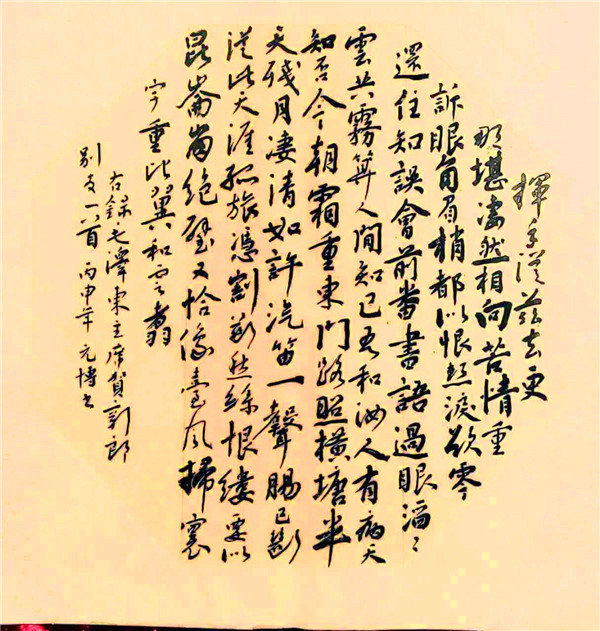 揮手從茲去更
那堪凄然相向苦情重
訴眼角眉梢都似恨熱淚欲零
還住知誤會前番書語過眼滔〻
雲共霧算人間知己吾和汝人有病天
知否今朝霜重東門路照橫塘半
天殘月凄清如許汽笛一聲腸已斷
從此天涯孤旅憑割斷愁絲恨縷要似
昆崙崩絕壁又恰像臺風掃寰
宇重比翼和雲翥
右錄毛澤東主席賀新郎
别友一首 丙申年 元博書